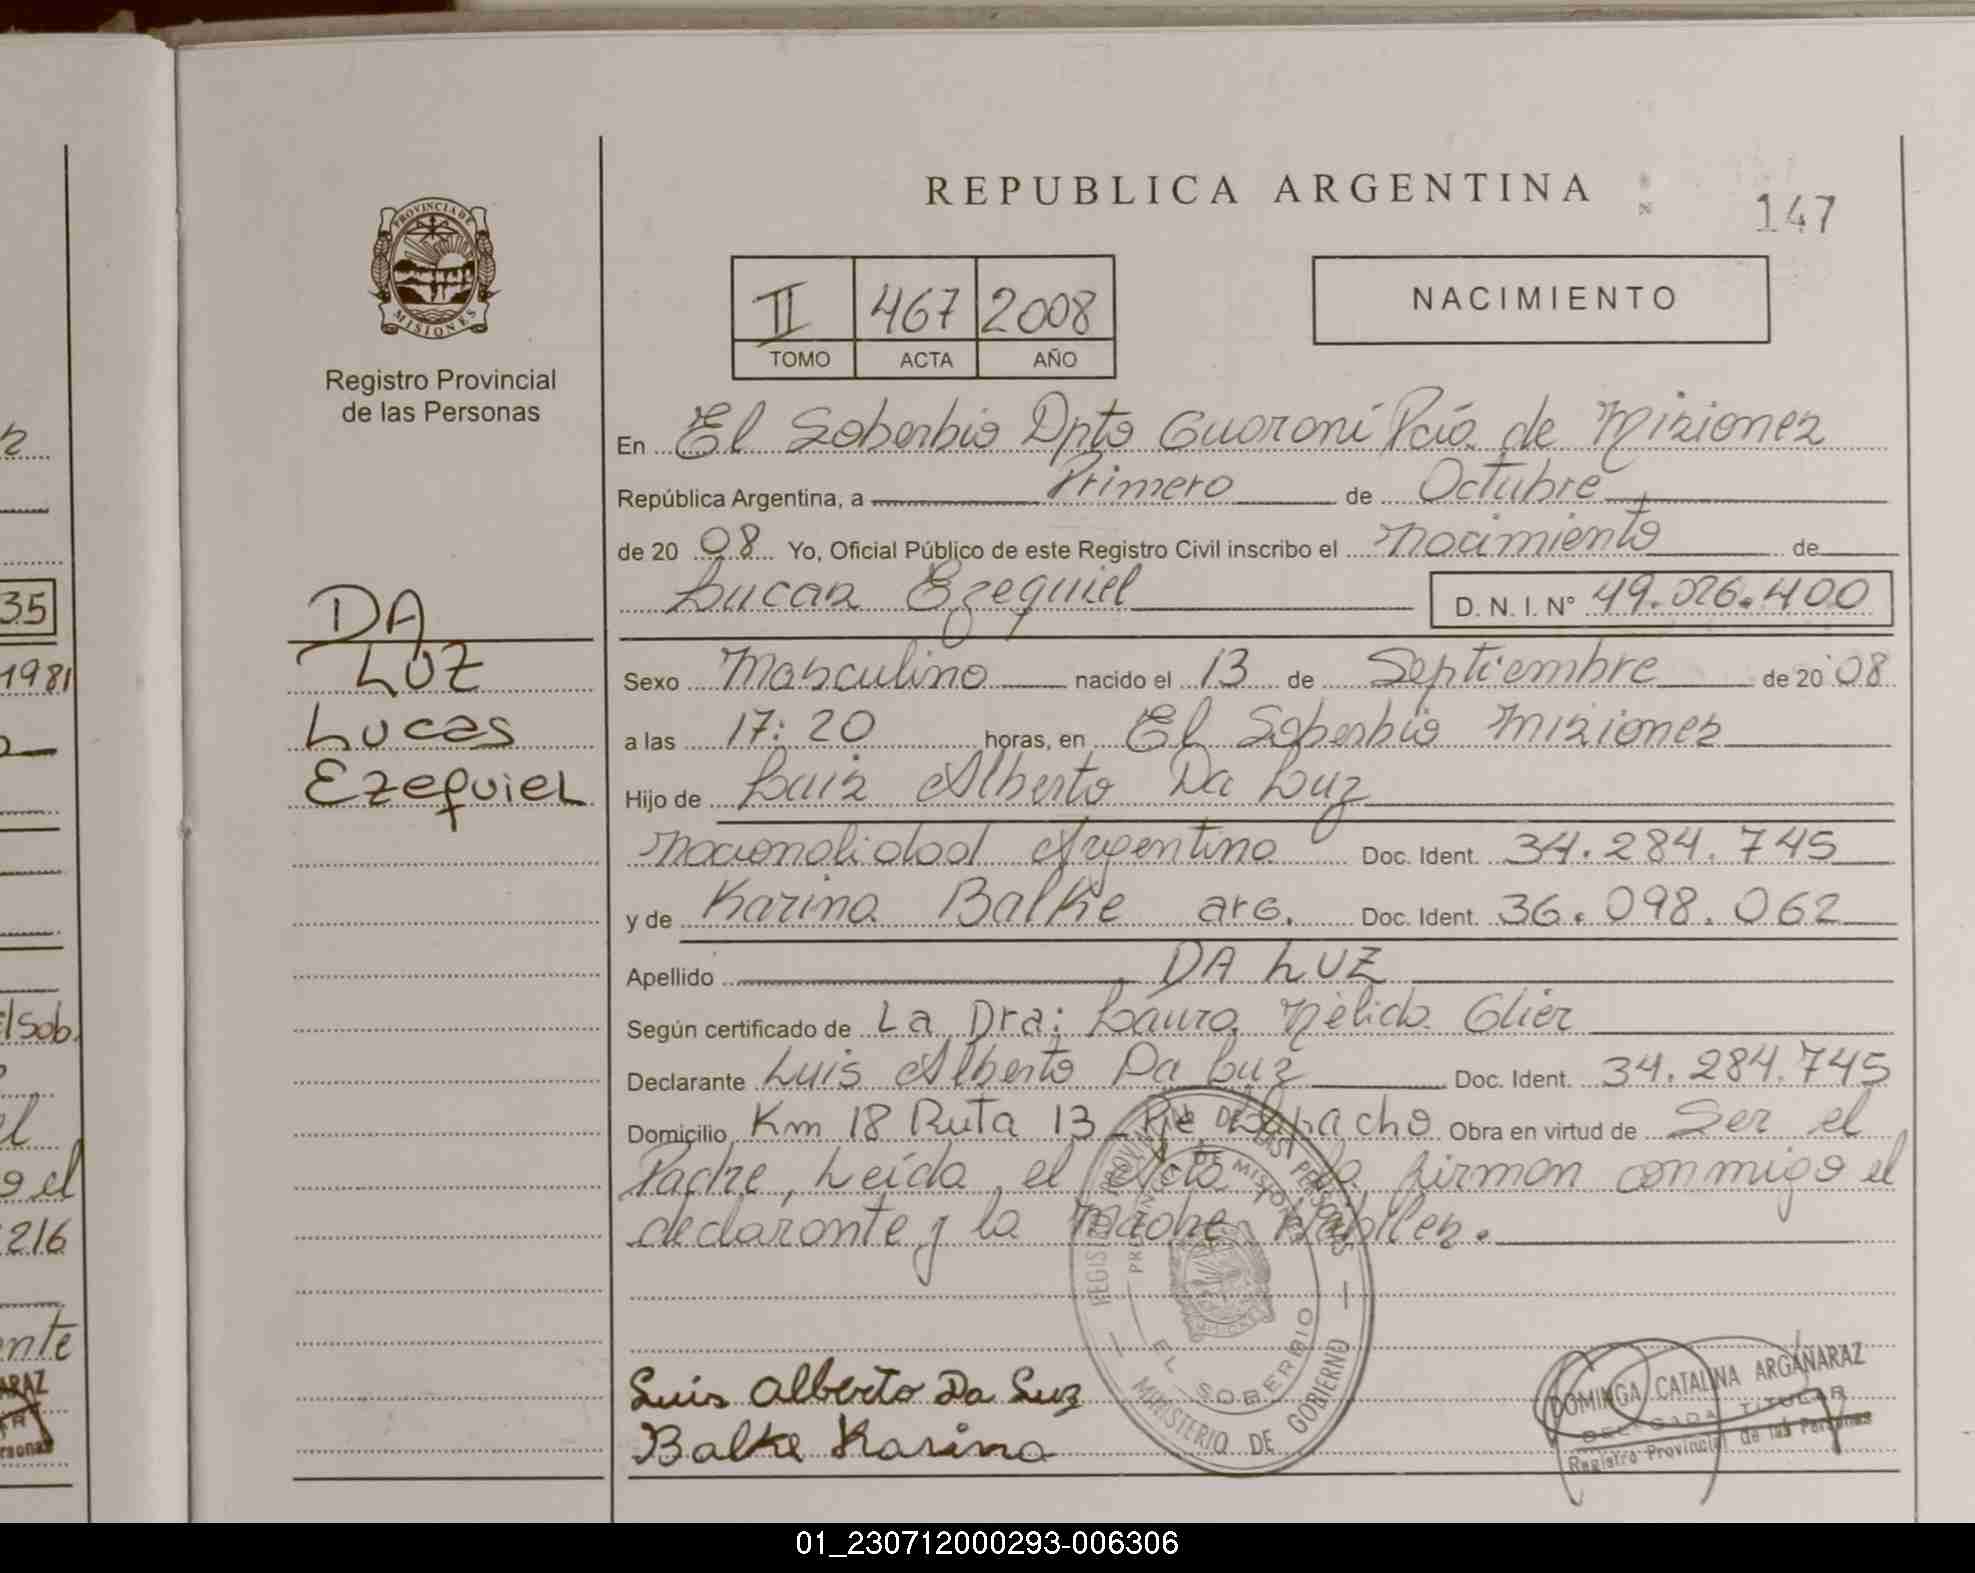 REPUBLICA ARGENTINA
147
PROVINCIA DE
MISIONES
Registro Provincial
de las Personas
II 467 2008
TOMO ACTA AÑO
NACIMIENTO
En El Soberbio Dpto Guaraní Pcia. de Misiones
República Argentina, a Primero de Octubre
de 20 08 Yo, Oficial Público de este Registro Civil inscribo el Nacimiento de
Lucas Ezequiel D. N. I. N° 49.026.400
DA
LUZ
Lucas
Ezequiel
Sexo Masculino nacido el 13 de Septiembre de 20 08
a las 17:20 horas, en El Soberbio Misiones
Hijo de Luis Alberto Da Luz
Nacionalidad Argentino Doc. Ident. 34.284.745
y de Karina Balke arg. Doc. Ident. 36.098.062
Apellido DA LUZ
Según certificado de La Dra: Laura Nélida Glier
Declarante Luis Alberto Da Luz Doc. Ident. 34.284.745
Domicilio Km 18 Ruta 13 Pje Lapacho Obra en virtud de Ser el
Padre, Leída el Acta, la firman conmigo el
declarante y la Madre
REGISTRO PROVINCIAL DE LAS PERSONAS
PROVINCIA DE MISIONES
EL SOBERBIO
MINISTERIO DE GOBIERNO
Luis Alberto Da Luz
Balke Karina
DOMINGA CATALINA ARGAÑARAZ
DELEGADA TITULAR
Registro Provincial de las Personas
35
1981
el Sob.
el
o el
216
ante
ARAZ
01_230712000293-006306